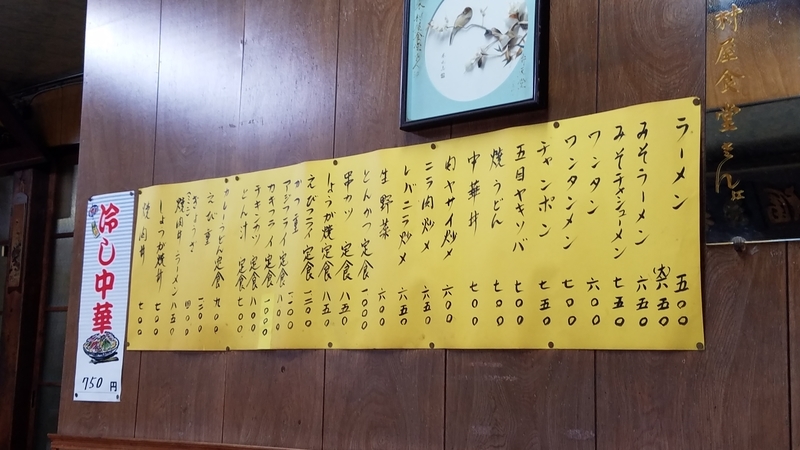 村屋食堂さん江
ラーメン 五〇〇
大 六五〇
みそラーメン 六五〇
みそチャシューメン 七五〇
ワンタン 六〇〇
ワンタンメン 七〇〇
チャンポン 七五〇
五目ヤキソバ 七〇〇
焼うどん 七〇〇
中華丼 七〇〇
肉ヤサイ炒メ
ニラ肉炒メ 六五〇
レバニラ炒メ 六五〇
生野菜
とんかつ定食 一〇〇〇
串カツ定食 八五〇
しょうが焼定食 八五〇
えびフライ定食 一二〇〇
かつ重 一〇〇〇
アジフライ定食 八〇〇
カキフライ定食 一〇〇〇
チキンカツ定食 八〇〇
とん汁定食 七〇〇
カレーうどん定食 九〇〇
えび重
ぎょうざ
(ミニ)焼肉丼ラーメン 八五〇
しょうが焼丼 七〇〇
焼肉丼 七〇〇
冷し中華
750円